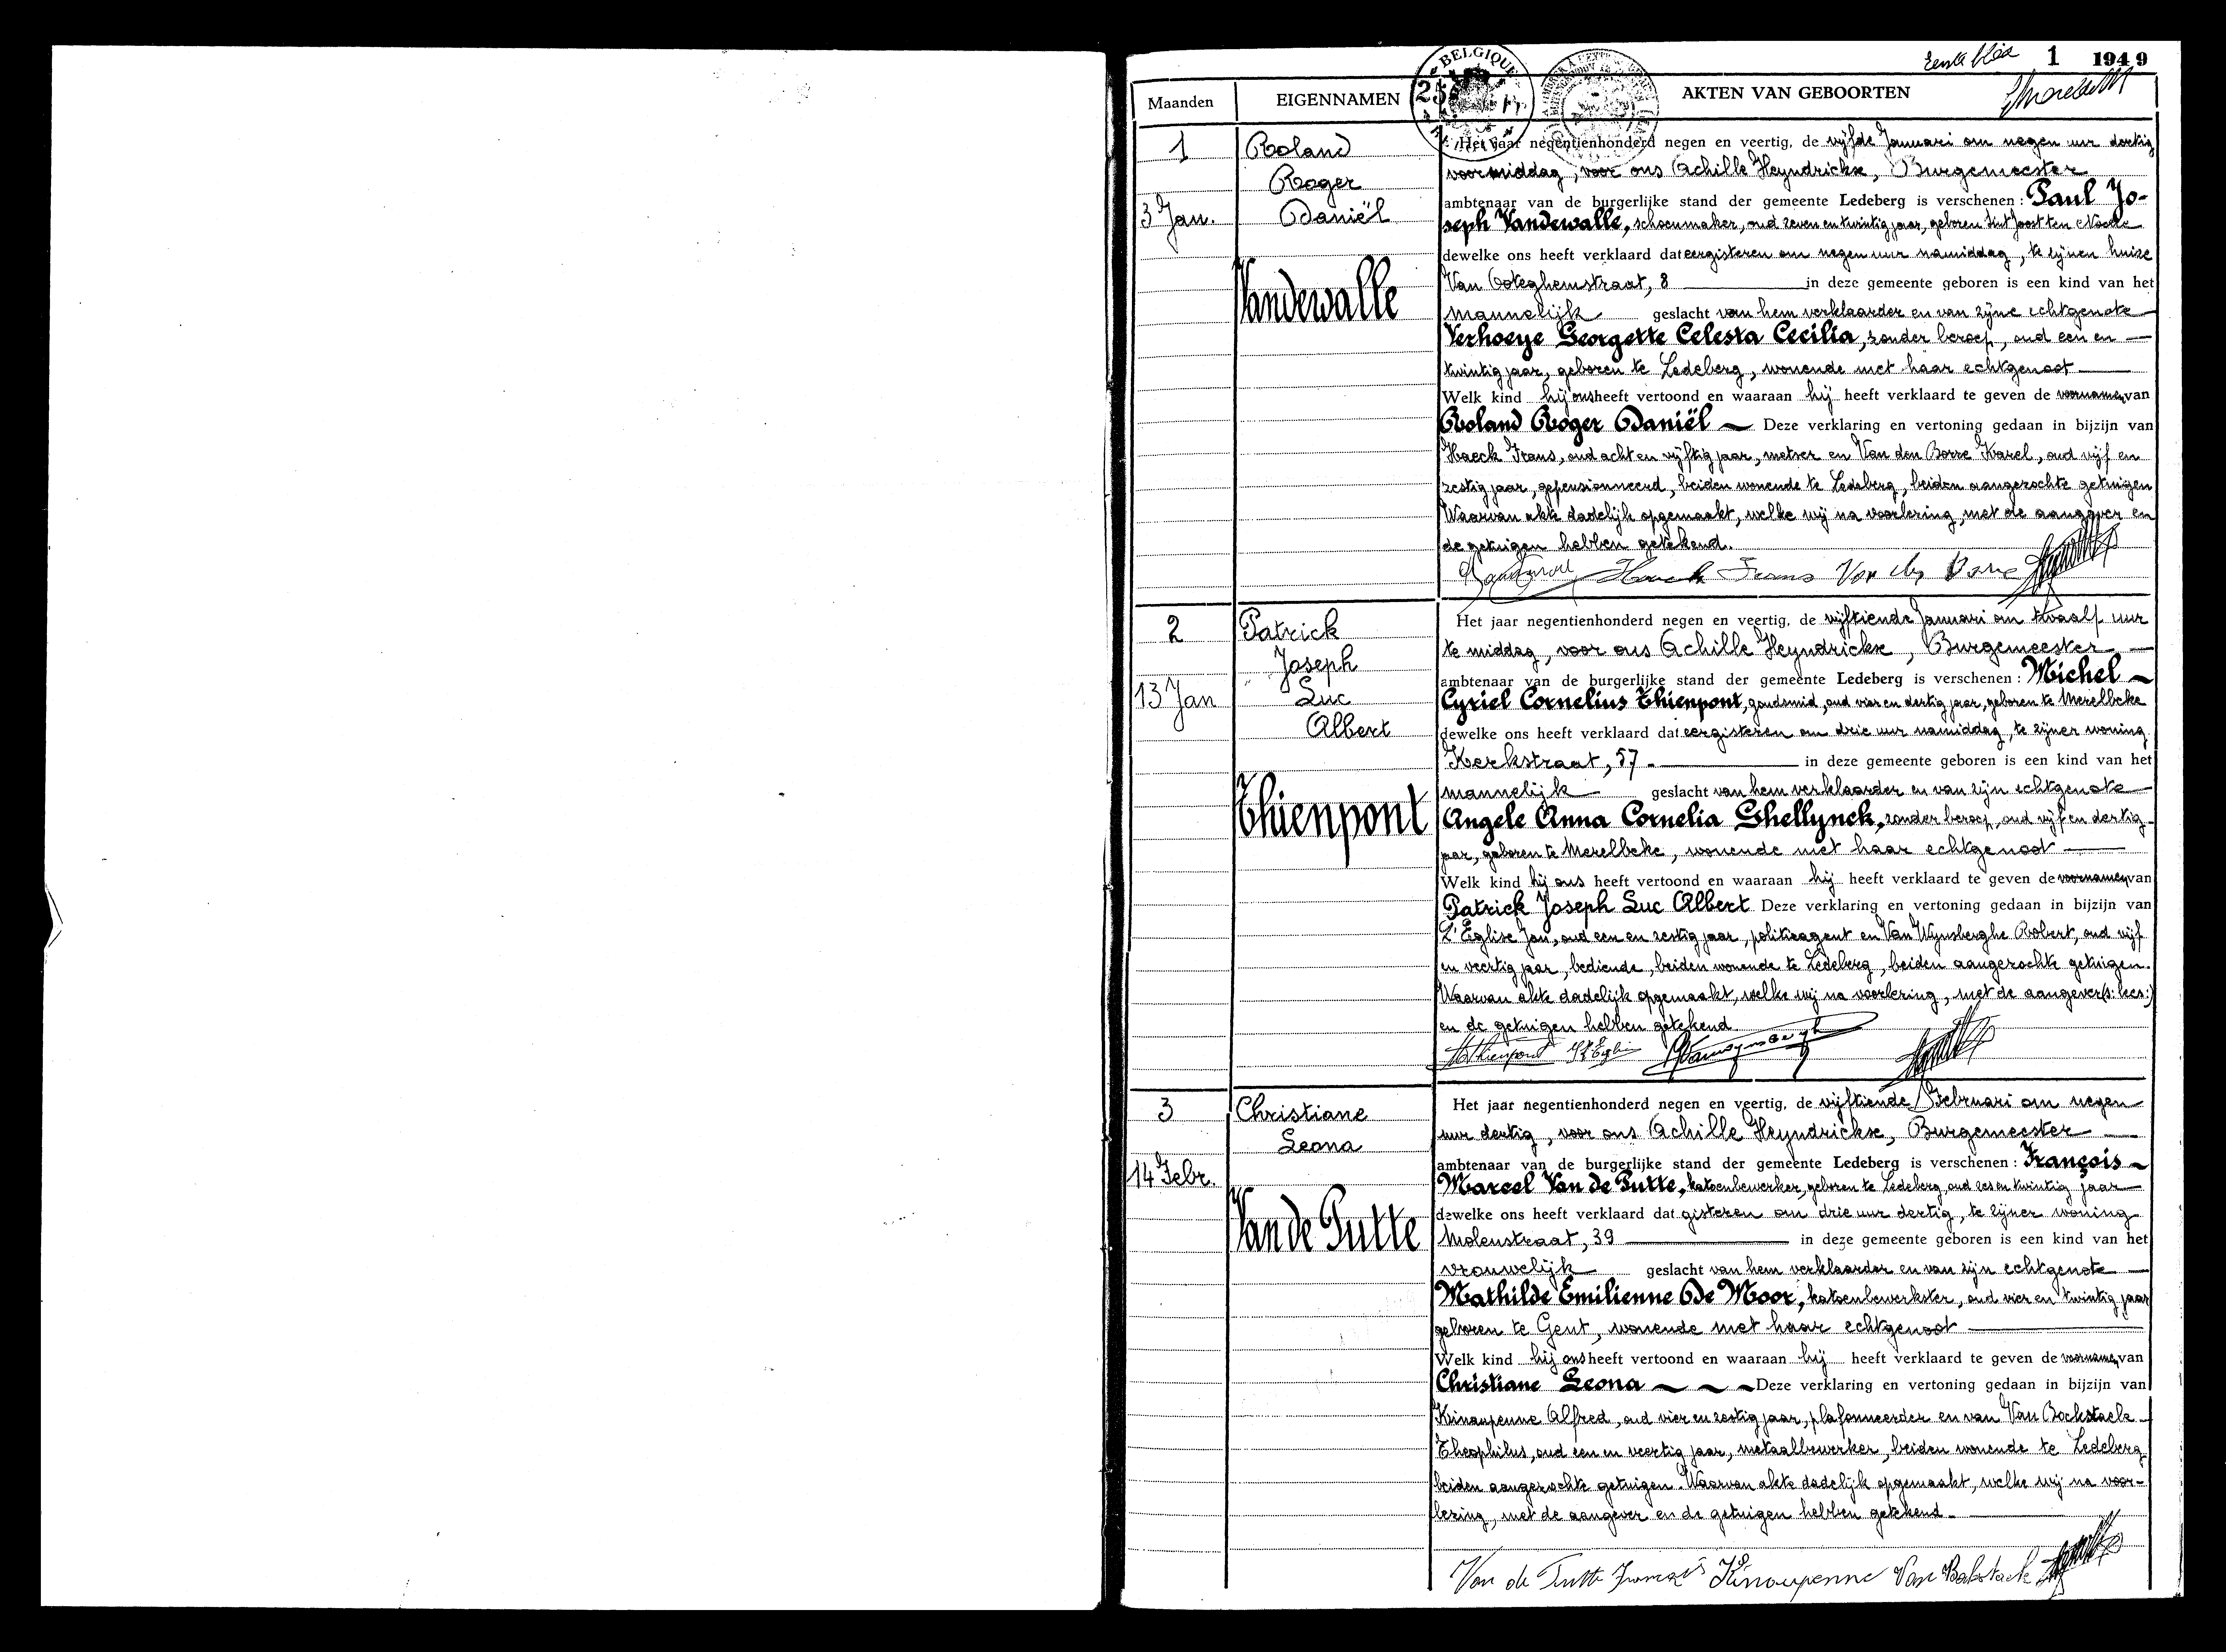 Eerste blad 1 1949
BELGIQUE
Maanden EIGENNAMEN AKTEN VAN GEBOORTEN
1
3 Jan.
Roland
Roger
Daniël
Vandewalle
Het jaar negentienhonderd negen en veertig, de vijfde Januari om negen uur dertig
voormiddag, voor ons Achille Heyndrickx, Burgemeester
ambtenaar van de burgerlijke stand der gemeente Ledeberg is verschenen: Paul Jo-
seph Vandewalle, schoenmaker, oud zeven en twintig jaar, geboren Sint Joost ten Noode
dewelke ons heeft verklaard dat eergisteren om negen uur namiddag, te zijnen huize
Van Ooteghemstraat, 8 in deze gemeente geboren is een kind van het
mannelijk geslacht van hem verklaarder en van zijne echtgenote
Verhoeye Georgette Celesta Cecilia, zonder beroep, oud een en
twintig jaar, geboren te Ledeberg, wonende met haar echtgenoot
Welk kind hij ons heeft vertoond en waaraan hij heeft verklaard te geven de voornamen van
Roland Roger Daniël Deze verklaring en vertoning gedaan in bijzijn van
Haeck Frans, oud acht en vijftig jaar, metser en Van den Borre Karel, oud vijf en
zestig jaar, gepensionneerd, beiden wonende te Ledeberg, beiden aangezochte getuigen
Waarvan akte dadelijk opgemaakt, welke wij na voorlezing, met de aangever en
de getuigen hebben getekend.
Haeck Frans Van den Borre
2
13 Jan
Patrick
Joseph
Luc
Albert
Thienpont
Het jaar negentienhonderd negen en veertig, de vijftiende Januari om twaalf uur
te middag, voor ons Achille Heyndrickx, Burgemeester
ambtenaar van de burgerlijke stand der gemeente Ledeberg is verschenen: Michel
Cyriel Cornelius Thienpont, goudsmid, oud vier en dertig jaar, geboren te Merelbeke
dewelke ons heeft verklaard dat eergisteren om drie uur namiddag, te zijner woning
Kerkstraat, 57 in deze gemeente geboren is een kind van het
mannelijk geslacht van hem verklaarder en van zijn echtgenote
Angele Anna Cornelia Shellynck, zonder beroep, oud vijf en dertig
jaar, geboren te Merelbeke, wonende met haar echtgenoot
Welk kind hij ons heeft vertoond en waaraan hij heeft verklaard te geven de voornamen van
Patrick Joseph Luc Albert Deze verklaring en vertoning gedaan in bijzijn van
L'Eglise Jan, oud een en zestig jaar, politieagent en Van Wynsberghe Robert, oud vijf
en veertig jaar, bediende, beiden wonende te Ledeberg, beiden aangezochte getuigen.
Waarvan akte dadelijk opgemaakt, welke wij na voorlezing, met de aangever
en de getuigen hebben getekend
Thienpont
3
14 Febr.
Christiane
Leona
Van de Putte
Het jaar negentienhonderd negen en veertig, de vijftiende Februari om negen
uur dertig, voor ons Achille Heyndrickx, Burgemeester
ambtenaar van de burgerlijke stand der gemeente Ledeberg is verschenen: François
Marcel Van de Putte, katoenbewerker, geboren te Ledeberg, oud zes en twintig jaar
dewelke ons heeft verklaard dat gisteren om drie uur dertig, te zijner woning
Molenstraat, 39 in deze gemeente geboren is een kind van het
vrouwelijk geslacht van hem verklaarder en van zijn echtgenote
Mathilde Emilienne De Moor, katoenbewerkster, oud vier en twintig jaar
geboren te Gent, wonende met haar echtgenoot
Welk kind hij ons heeft vertoond en waaraan hij heeft verklaard te geven de voornamen van
Christiane Leona Deze verklaring en vertoning gedaan in bijzijn van
Kinaupenne Alfred, oud vier en zestig jaar, plafonneerder en van Van Bockstaele
Theophilus, oud een en veertig jaar, metaalbewerker, beiden wonende te Ledeberg
beiden aangezochte getuigen. Waarvan akte dadelijk opgemaakt, welke wij na voor-
lezing, met de aangever en de getuigen hebben getekend
Van de Putte François Kinaupenne Van Bokstaele